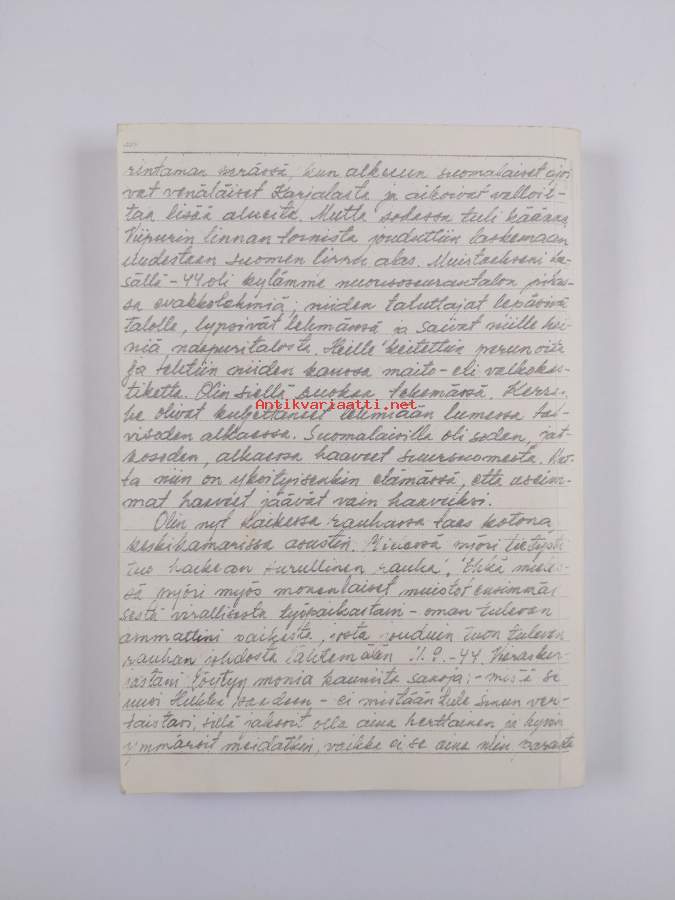 rintaman perässä, kun alkuun suomalaiset ajoi-
vat venäläiset Karjalasta ja aikoivat valloit-
taa lisää alueita. Mutta sodassa tuli käänne
Viipurin linnan tornista jouduttiin laskemaan
uudesteen suomen lippu alas. Muistaakseni ke-
sällä -44 oli kylämme nuorisoseurantalon pihas-
sa evakkolehmiä; niiden taluttajat lepäsivät
talolla, lypsivät lehmänsä ja saivat niille hei-
niä naapuritalosta. Heille keitettiin perunoita
ja tehtiin niiden kanssa maito- eli valkokas-
tiketta. Olin siellä ruokaa tekemässä. Kerran
he olivat kuljettaneet lehmiään lumessa tal-
visodan alkaessa. Suomalaisilla oli sodan, jat-
Antikvariaatti.net
kosodan, alkaessa haaveet suursuomesta. Mut-
ta niin on yksityisenkin elämässä, että useim-
mat haaveet jäävät vain haaveiksi.
Olin nyt kaikessa rauhassa taas kotona
keskikamarissa asustin. Mielessä pyöri tietysti
tuo haikean surullinen rauha. Ehkä mieles-
sä pyöri myös monenlaiset muistot ensimmäi-
sestä virallisesta työpaikastani - oman tulevan
ammattini paikasta, josta jouduin tuon tulevan
rauhan johdosta lähtemään -44. Vieraskir-
jastani löytyy monia kauniita sanoja; - missä se
muoi - ei mistään tule sinun ver-
taistasi, sillä jaksoit olla aina herttainen ja hyvä
ymmärsit meidätkin, vaikka ei se aina niin